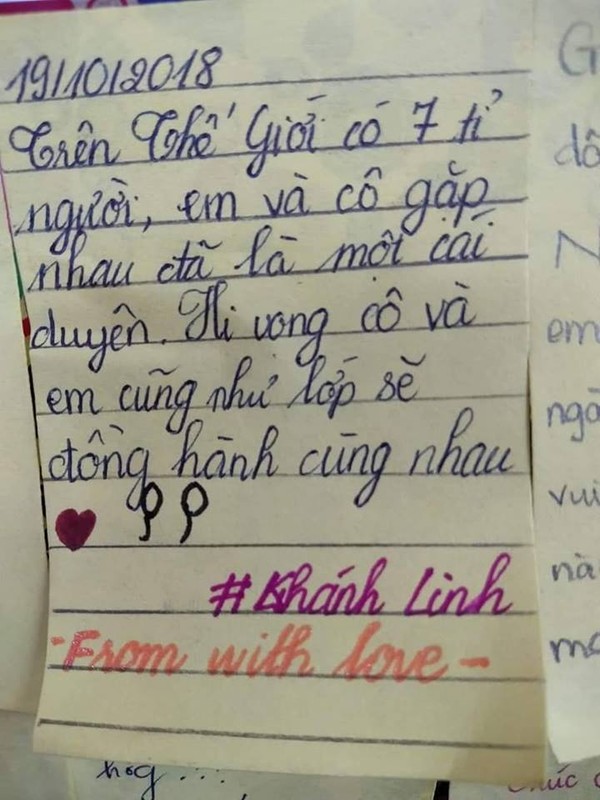 19/10/2018
Trên Thế Giới có 7 tỉ
người, em và cô gặp
nhau đã là một cái
duyên. Hi vọng cô và
em cũng như lớp sẽ
đồng hành cùng nhau
#Khánh Linh
- From with love -
G
dô
N
em
ngà
vui
nà
hog ...